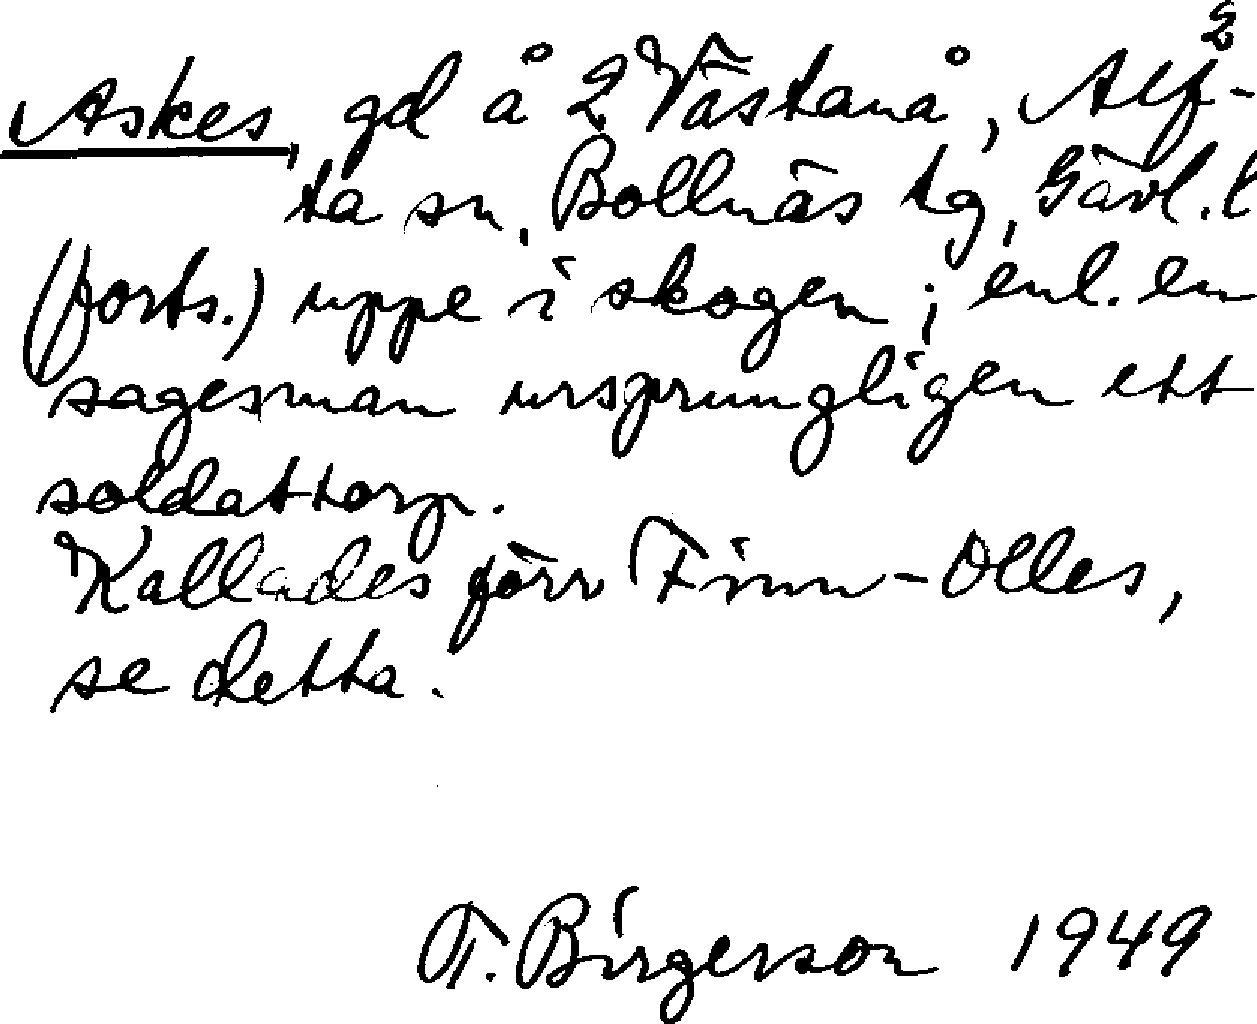 2
Askes, gd å 2 Västanå, Alf-
ta sn, Bollnäs tg, Gävl. l
(forts.) uppe i skogen; enl. en
sagesman ursprungligen ett
soldattorp.
Kallades förr Finn-Olles,
se detta.
T. Birgerson 1949